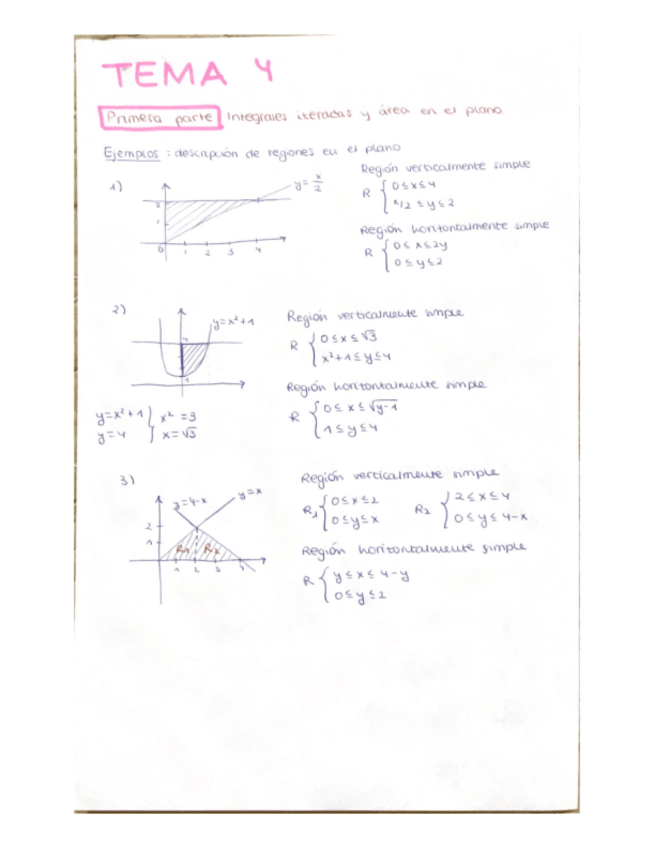 TEMA 4
Primera parte Integrales iteradas y área en el plano
Ejemplos : descripción de regiones en el plano
1)
y = x/2
2
1
0 1 2 3 4
Región verticalmente simple
R { 0 ≤ x ≤ 4
x/2 ≤ y ≤ 2
Región horizontalmente simple
R { 0 ≤ x ≤ 2y
0 ≤ y ≤ 2
2)
y = x² + 1
4
1
y = x² + 1 } x² = 3
y = 4 } x = √3
Región verticalmente simple
R { 0 ≤ x ≤ √3
x² + 1 ≤ y ≤ 4
Región horizontalmente simple
R { 0 ≤ x ≤ √y-1
1 ≤ y ≤ 4
3)
y = 4-x
y = x
2
1
R1 R2
1 2 3
Región verticalmente simple
R1 { 0 ≤ x ≤ 2
0 ≤ y ≤ x
R2 { 2 ≤ x ≤ 4
0 ≤ y ≤ 4-x
Región horizontalmente simple
R { y ≤ x ≤ 4-y
0 ≤ y ≤ 2